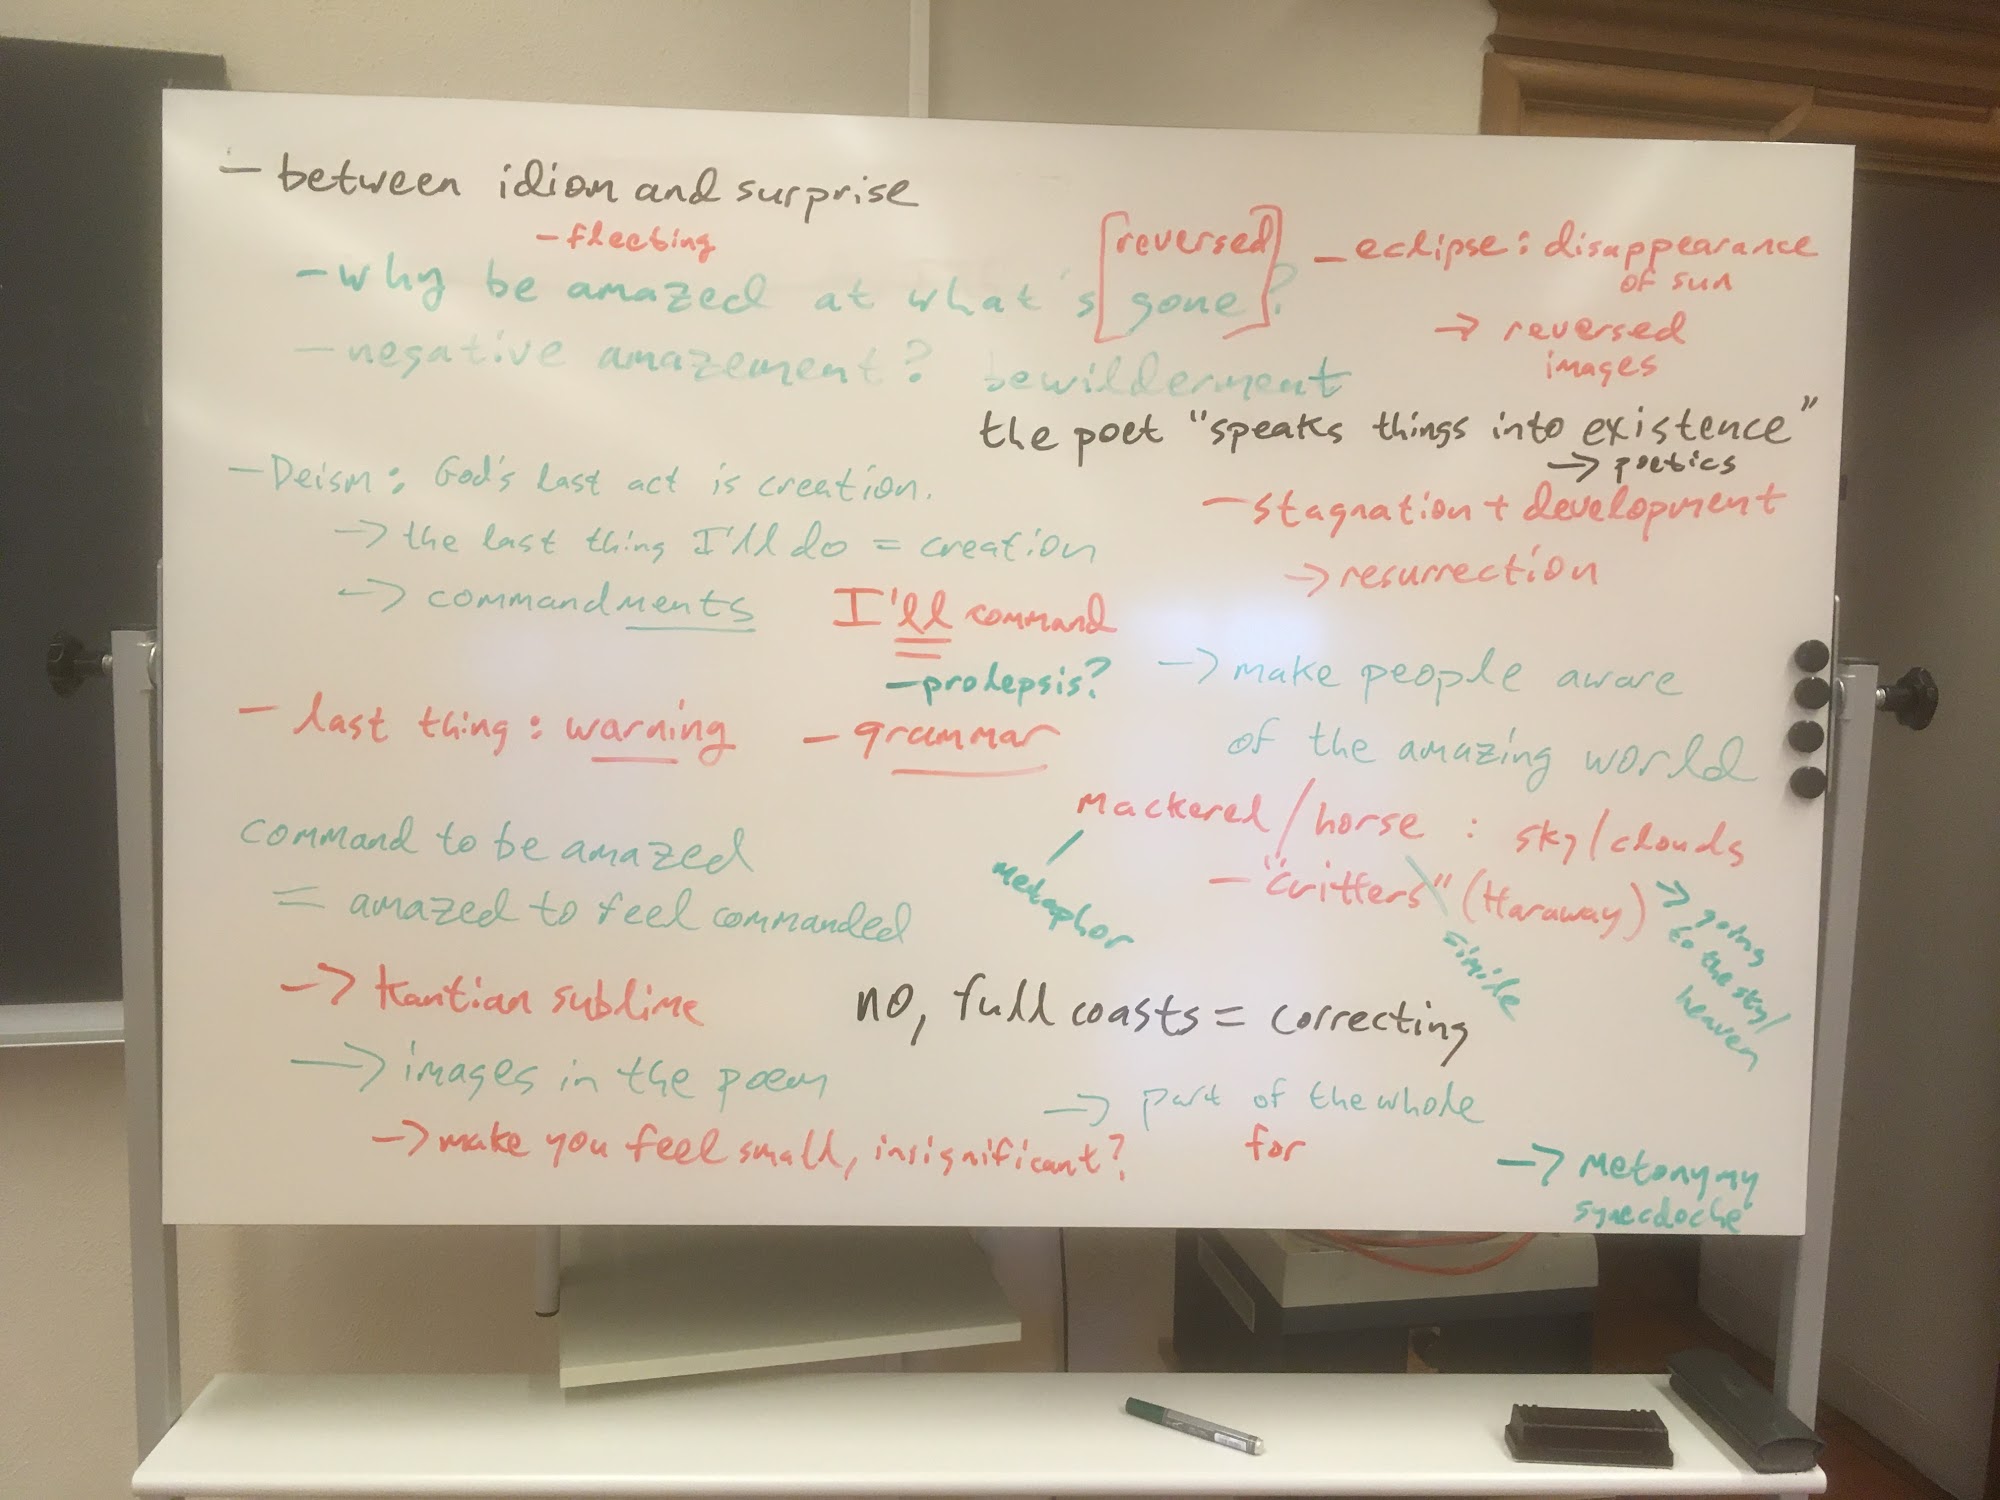 – between idiom and surprise
– fleeting
– why be amazed at what's [gone]?
[reversed]
– eclipse: disappearance
of sun
→ reversed
images
– negative amazement? bewilderment
the poet "speaks things into existence"
→ poetics
– Deism: God's last act is creation.
→ the last thing I'll do = creation
→ commandments
– stagnation + development
→ resurrection
I'll command
– prolepsis?
→ make people aware
of the amazing world
– last thing: warning
– grammar
mackerel/horse : sky/clouds
metaphor
– "critters" (Haraway)
simile
→ going
to the sky/
heaven
command to be amazed
= amazed to feel commanded
→ Kantian sublime
no, full coasts = correcting
→ images in the poem
→ make you feel small, insignificant?
→ part of the whole
for
→ metonymy
synecdoche